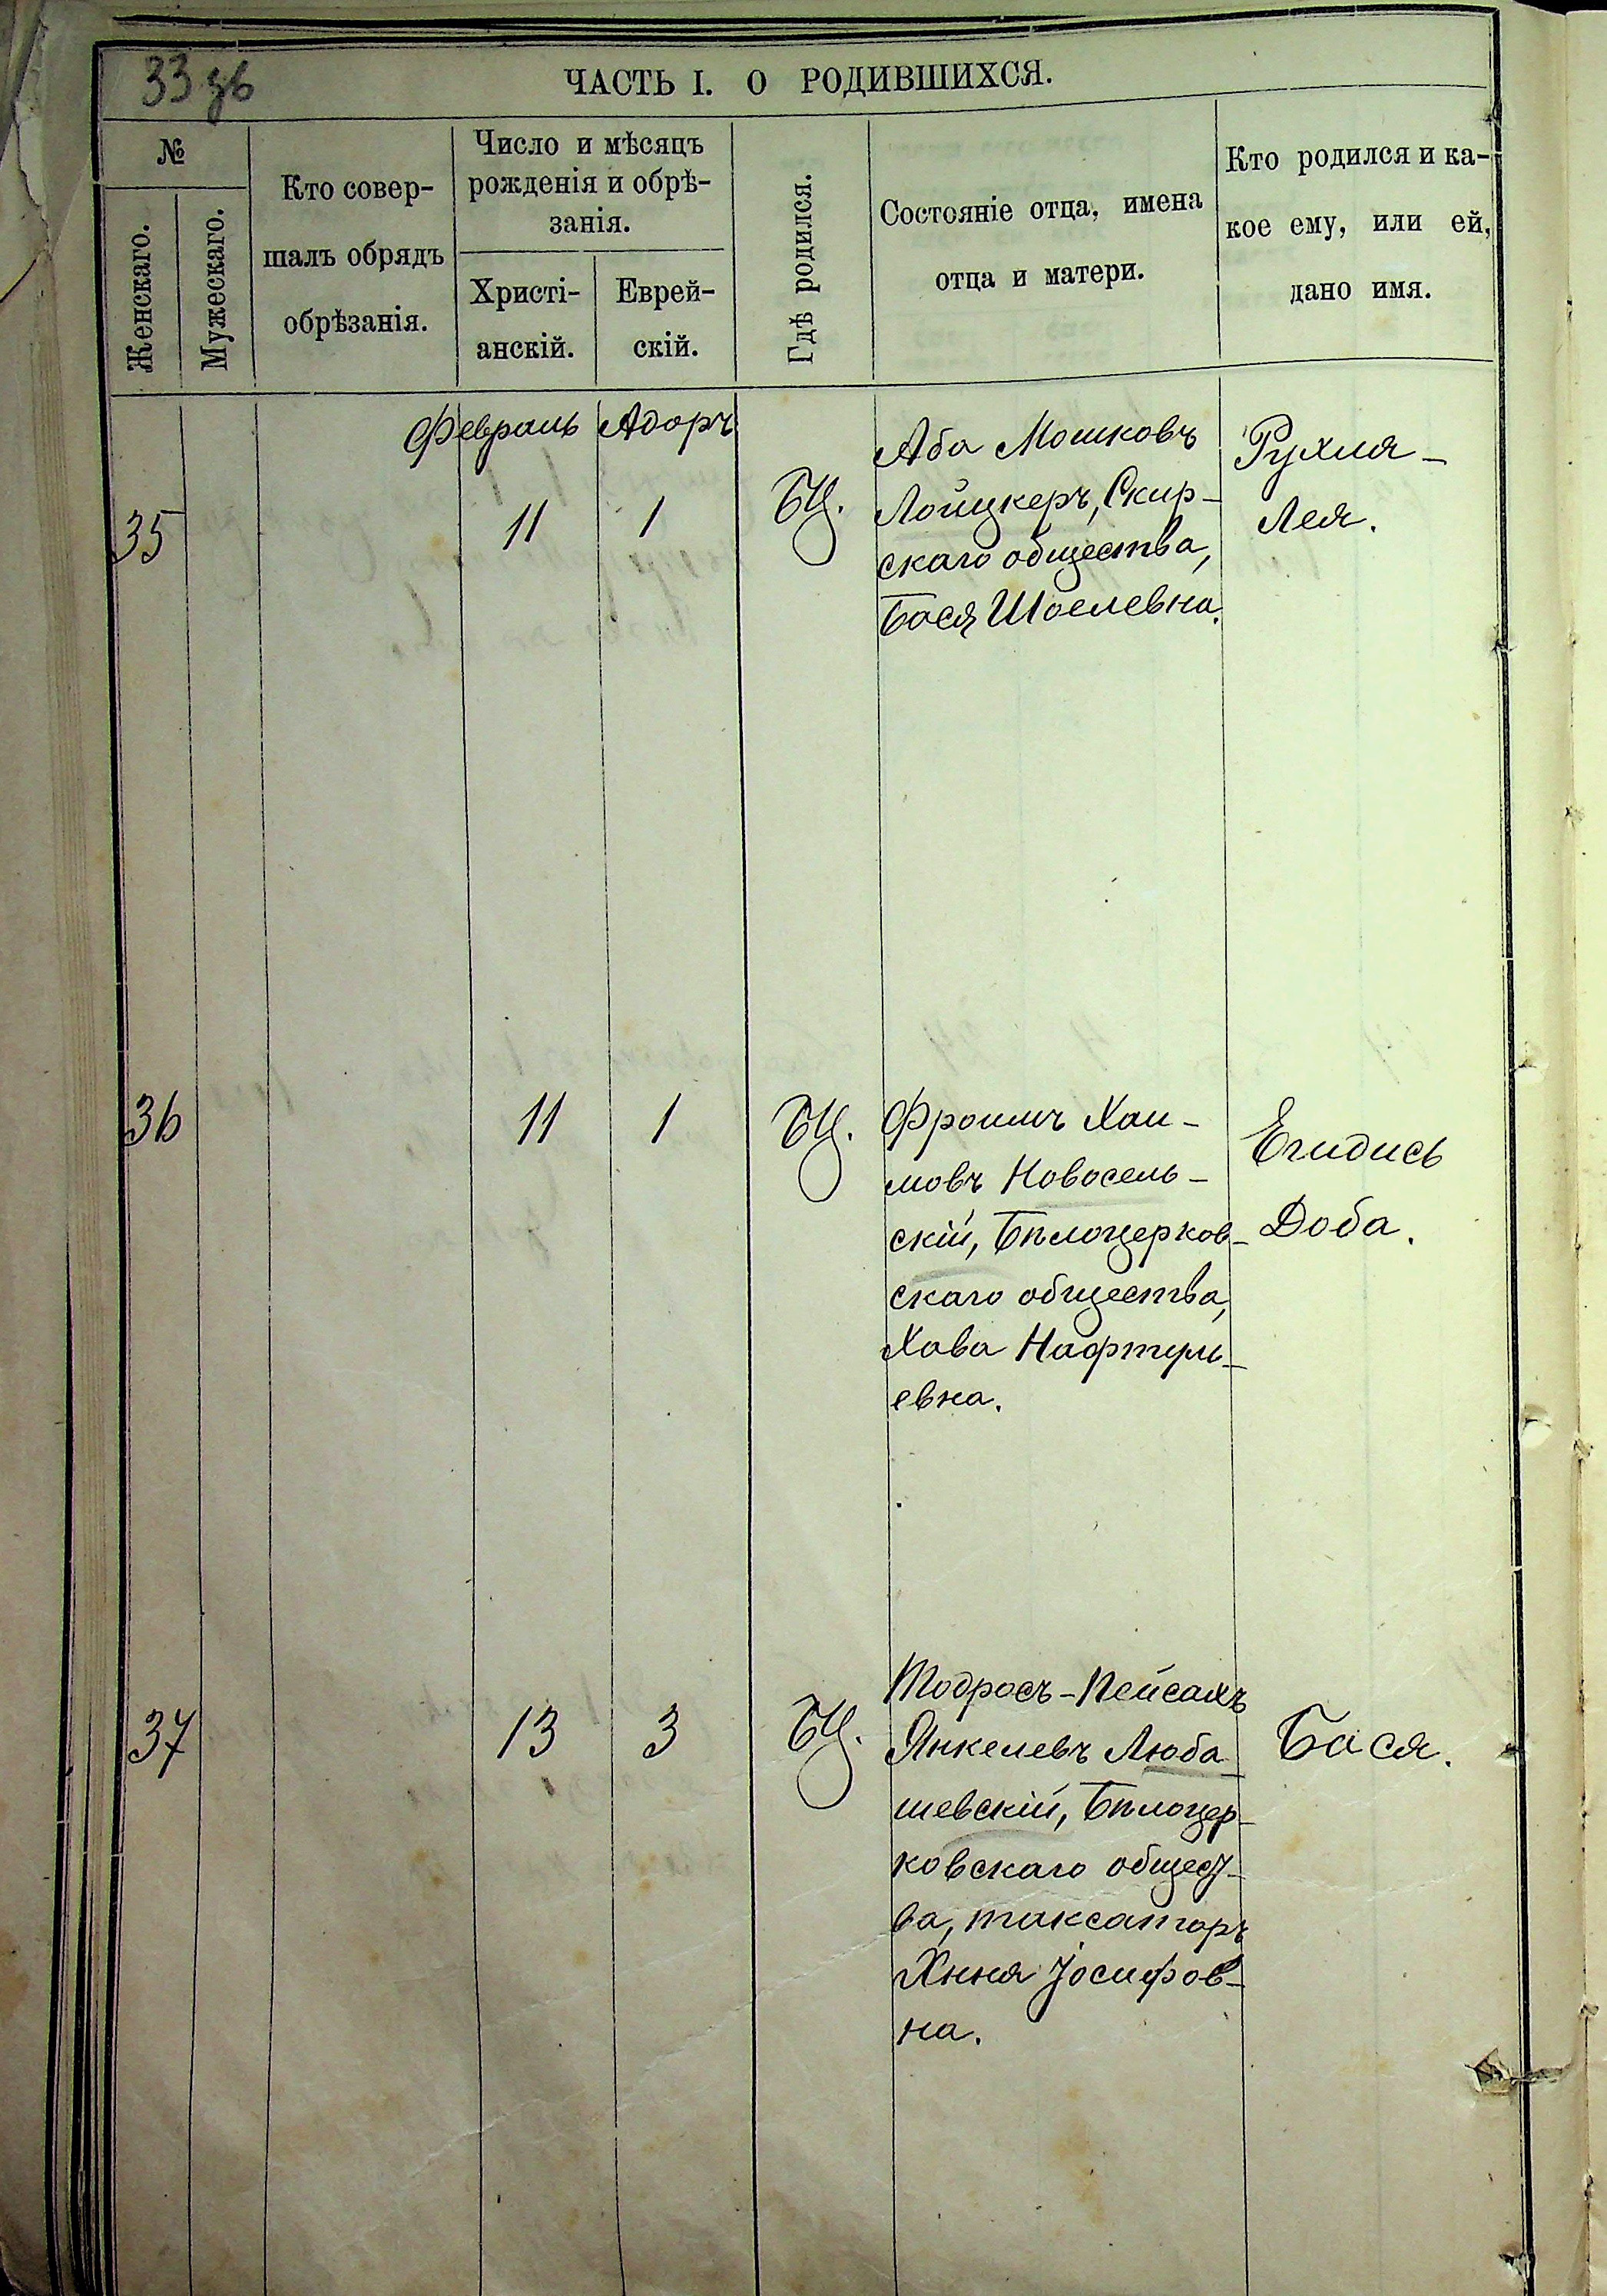 33 зв
ЧАСТЬ I. О РОДИВШИХСЯ.
№
Женскаго.
Мужескаго.
Кто совер-
шалъ обрядъ
обрѣзанія.
Число и мѣсяцъ
рожденія и обрѣ-
занія.
Христі-
анскій.
Еврей-
скій.
Гдѣ родился.
Состояніе отца, имена
отца и матери.
Кто родился и ка-
кое ему, или ей,
дано имя.
Февраль Адоръ
35
11
1
БЦ.
Аба Мошковъ
Лойцкеръ, Сквир-
скаго общества,
Бася Шоелевна.
Рухля-
Лея.
36
11
1
БЦ.
Фроимъ Хаи-
мовъ Новосель-
скій, Бѣлоцерков-
скаго общества,
Хава Нафтуль-
евна.
Егидись
Доба.
37
13
3
БЦ.
Тодросъ-Пейсахъ
Янкелевъ Люба-
шевскій, Бѣлоцер-
ковскаго общест-
ва, таксаторъ
Хння Іосифов-
на.
Бася.